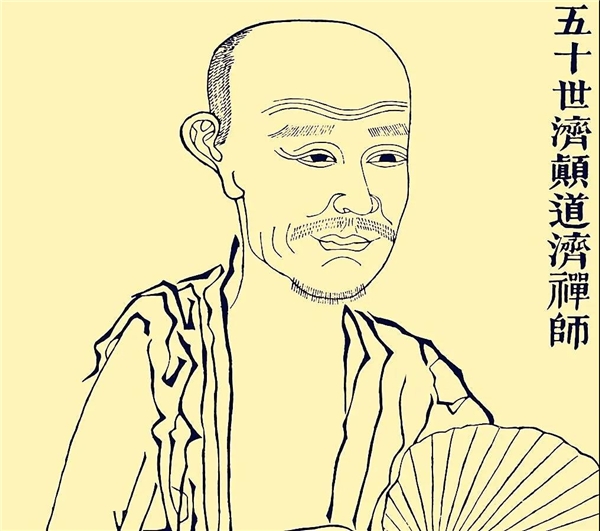 五十世濟顛道濟禪師